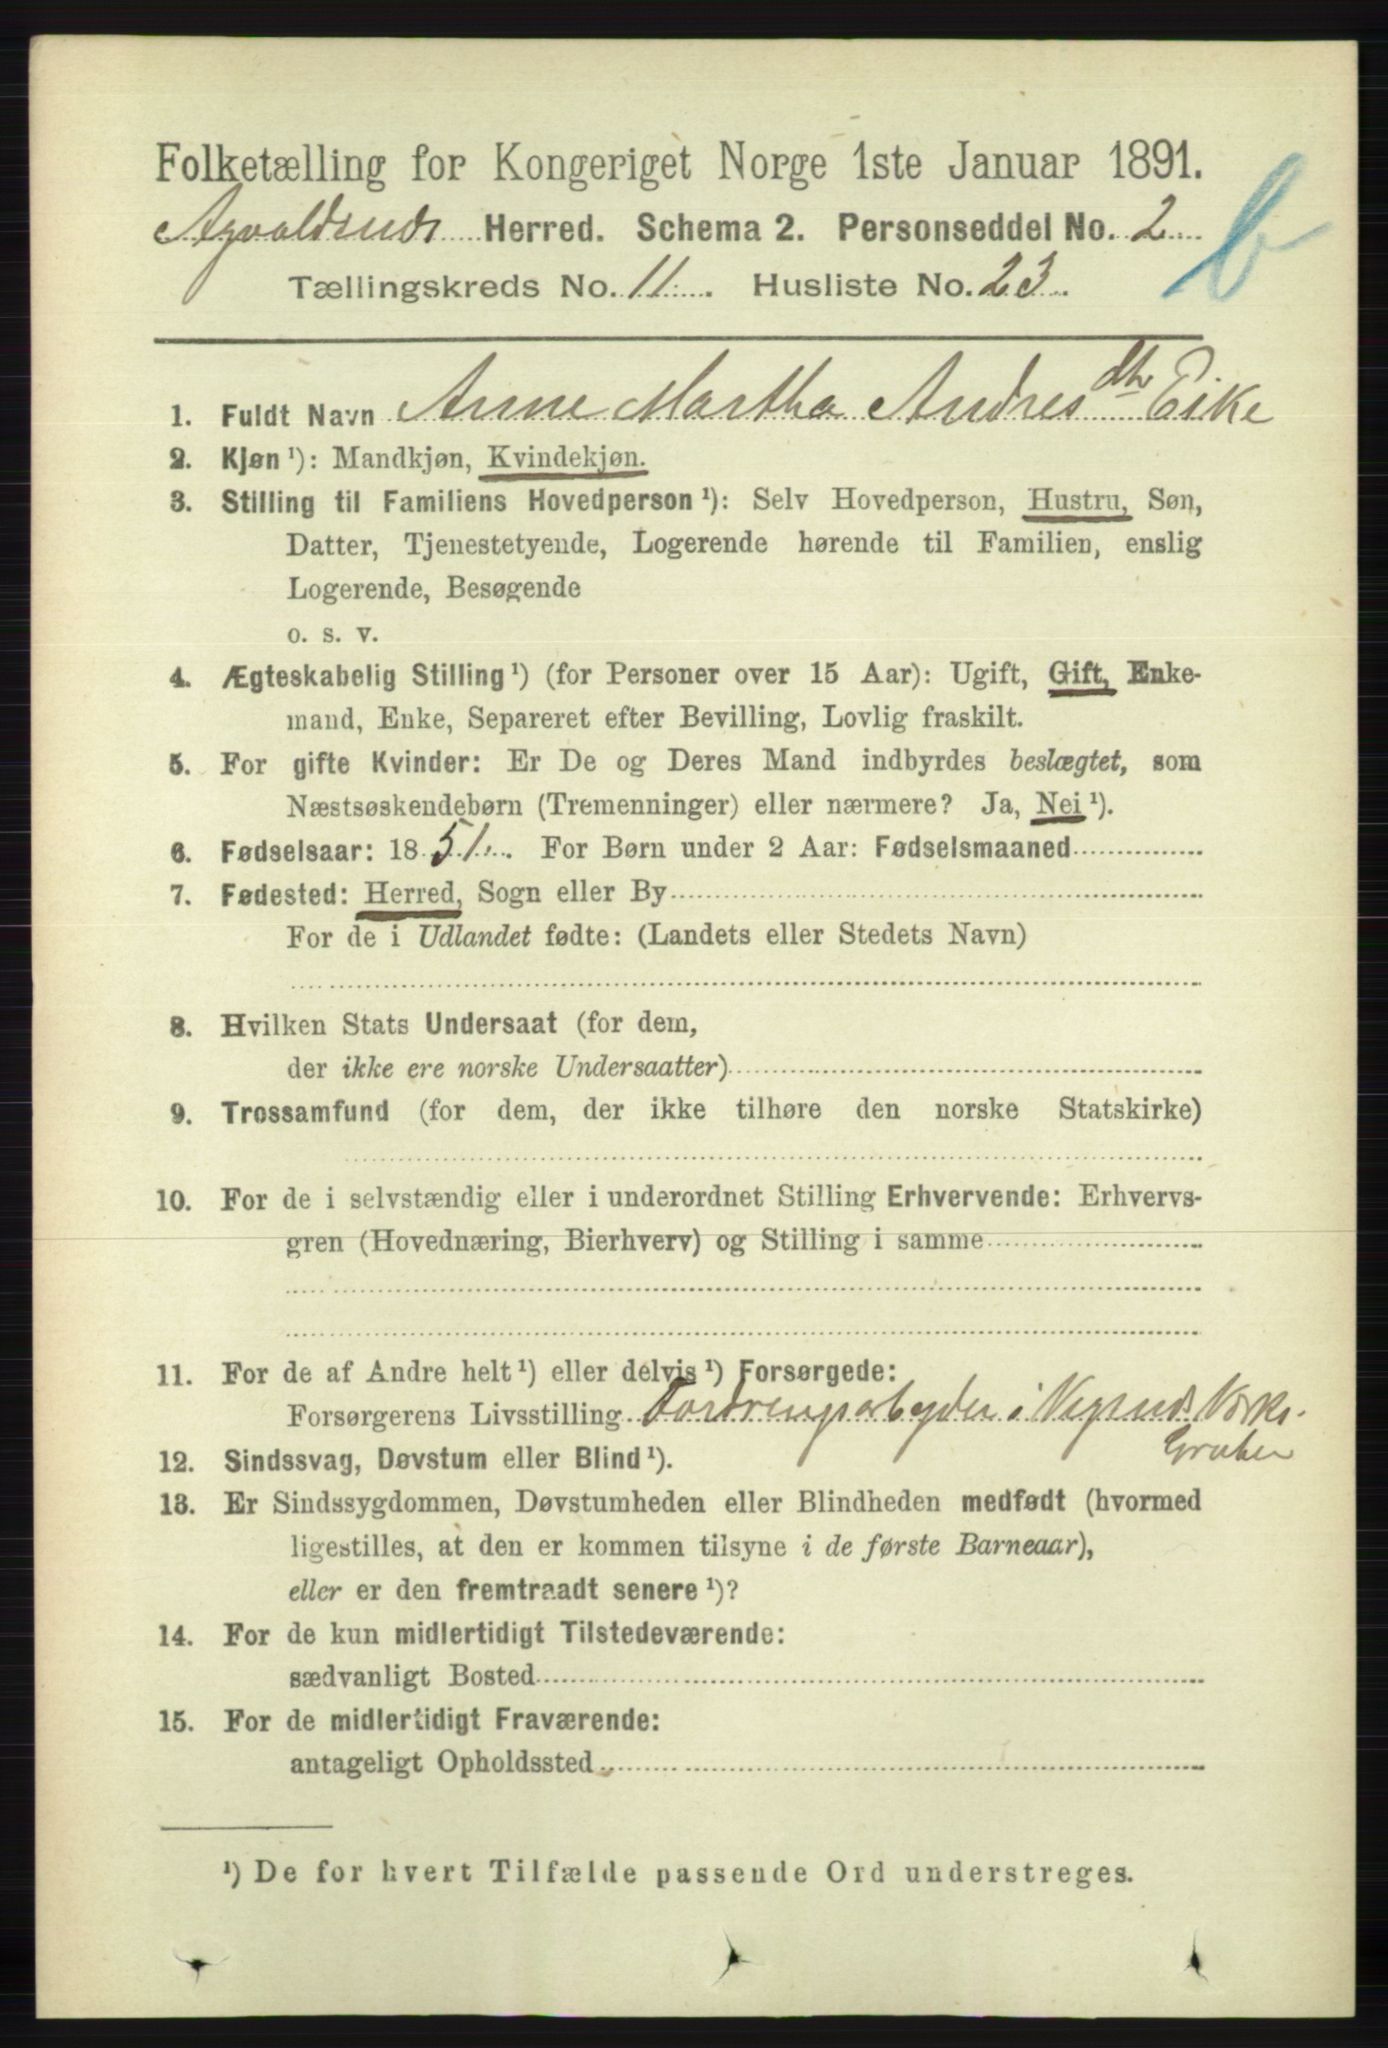 Folketælling for Kongeriget Norge 1ste Januar 1891.
Agvaldsnds Herred. Schema 2. Personseddel No. 2
b
Tællingskreds No. 11. Husliste No. 23.
1. Fuldt Navn Anne Martha Andresdtr Eike
2. Kjøn ¹): Mandkjøn, Kvindekjøn.
3. Stilling til Familiens Hovedperson ¹): Selv Hovedperson, Hustru, Søn,
Datter, Tjenestetyende, Logerende hørende til Familien, enslig
Logerende, Besøgende
o. s. v.
4. Ægteskabelig Stilling ¹) (for Personer over 15 Aar): Ugift, Gift, Enke-
mand, Enke, Separeret efter Bevilling, Lovlig fraskilt.
5. For gifte Kvinder: Er De og Deres Mand indbyrdes beslægtet, som
Næstsøskendebørn (Tremenninger) eller nærmere? Ja, Nei ¹).
6. Fødselsaar: 1851. For Børn under 2 Aar: Fødselsmaaned
7. Fødested: Herred, Sogn eller By
For de i Udlandet fødte: (Landets eller Stedets Navn)
8. Hvilken Stats Undersaat (for dem,
der ikke ere norske Undersaatter)
9. Trossamfund (for dem, der ikke tilhøre den norske Statskirke)
10. For de i selvstændig eller i underordnet Stilling Erhvervende: Erhvervs-
gren (Hovednæring, Bierhverv) og Stilling i samme
11. For de af Andre helt ¹) eller delvis ¹) Forsørgede:
Forsørgerens Livsstilling Fordrengsarbeyder i Vigsnds Værks.
Gruber
12. Sindssvag, Døvstum eller Blind ¹).
13. Er Sindssygdommen, Døvstumheden eller Blindheden medfødt (hvormed
ligestilles, at den er kommen tilsyne i de første Barneaar),
eller er den fremtraadt senere ¹)?
14. For de kun midlertidigt Tilstedeværende:
sædvanligt Bosted
15. For de midlertidigt Fraværende:
antageligt Opholdssted
¹) De for hvert Tilfælde passende Ord understreges.